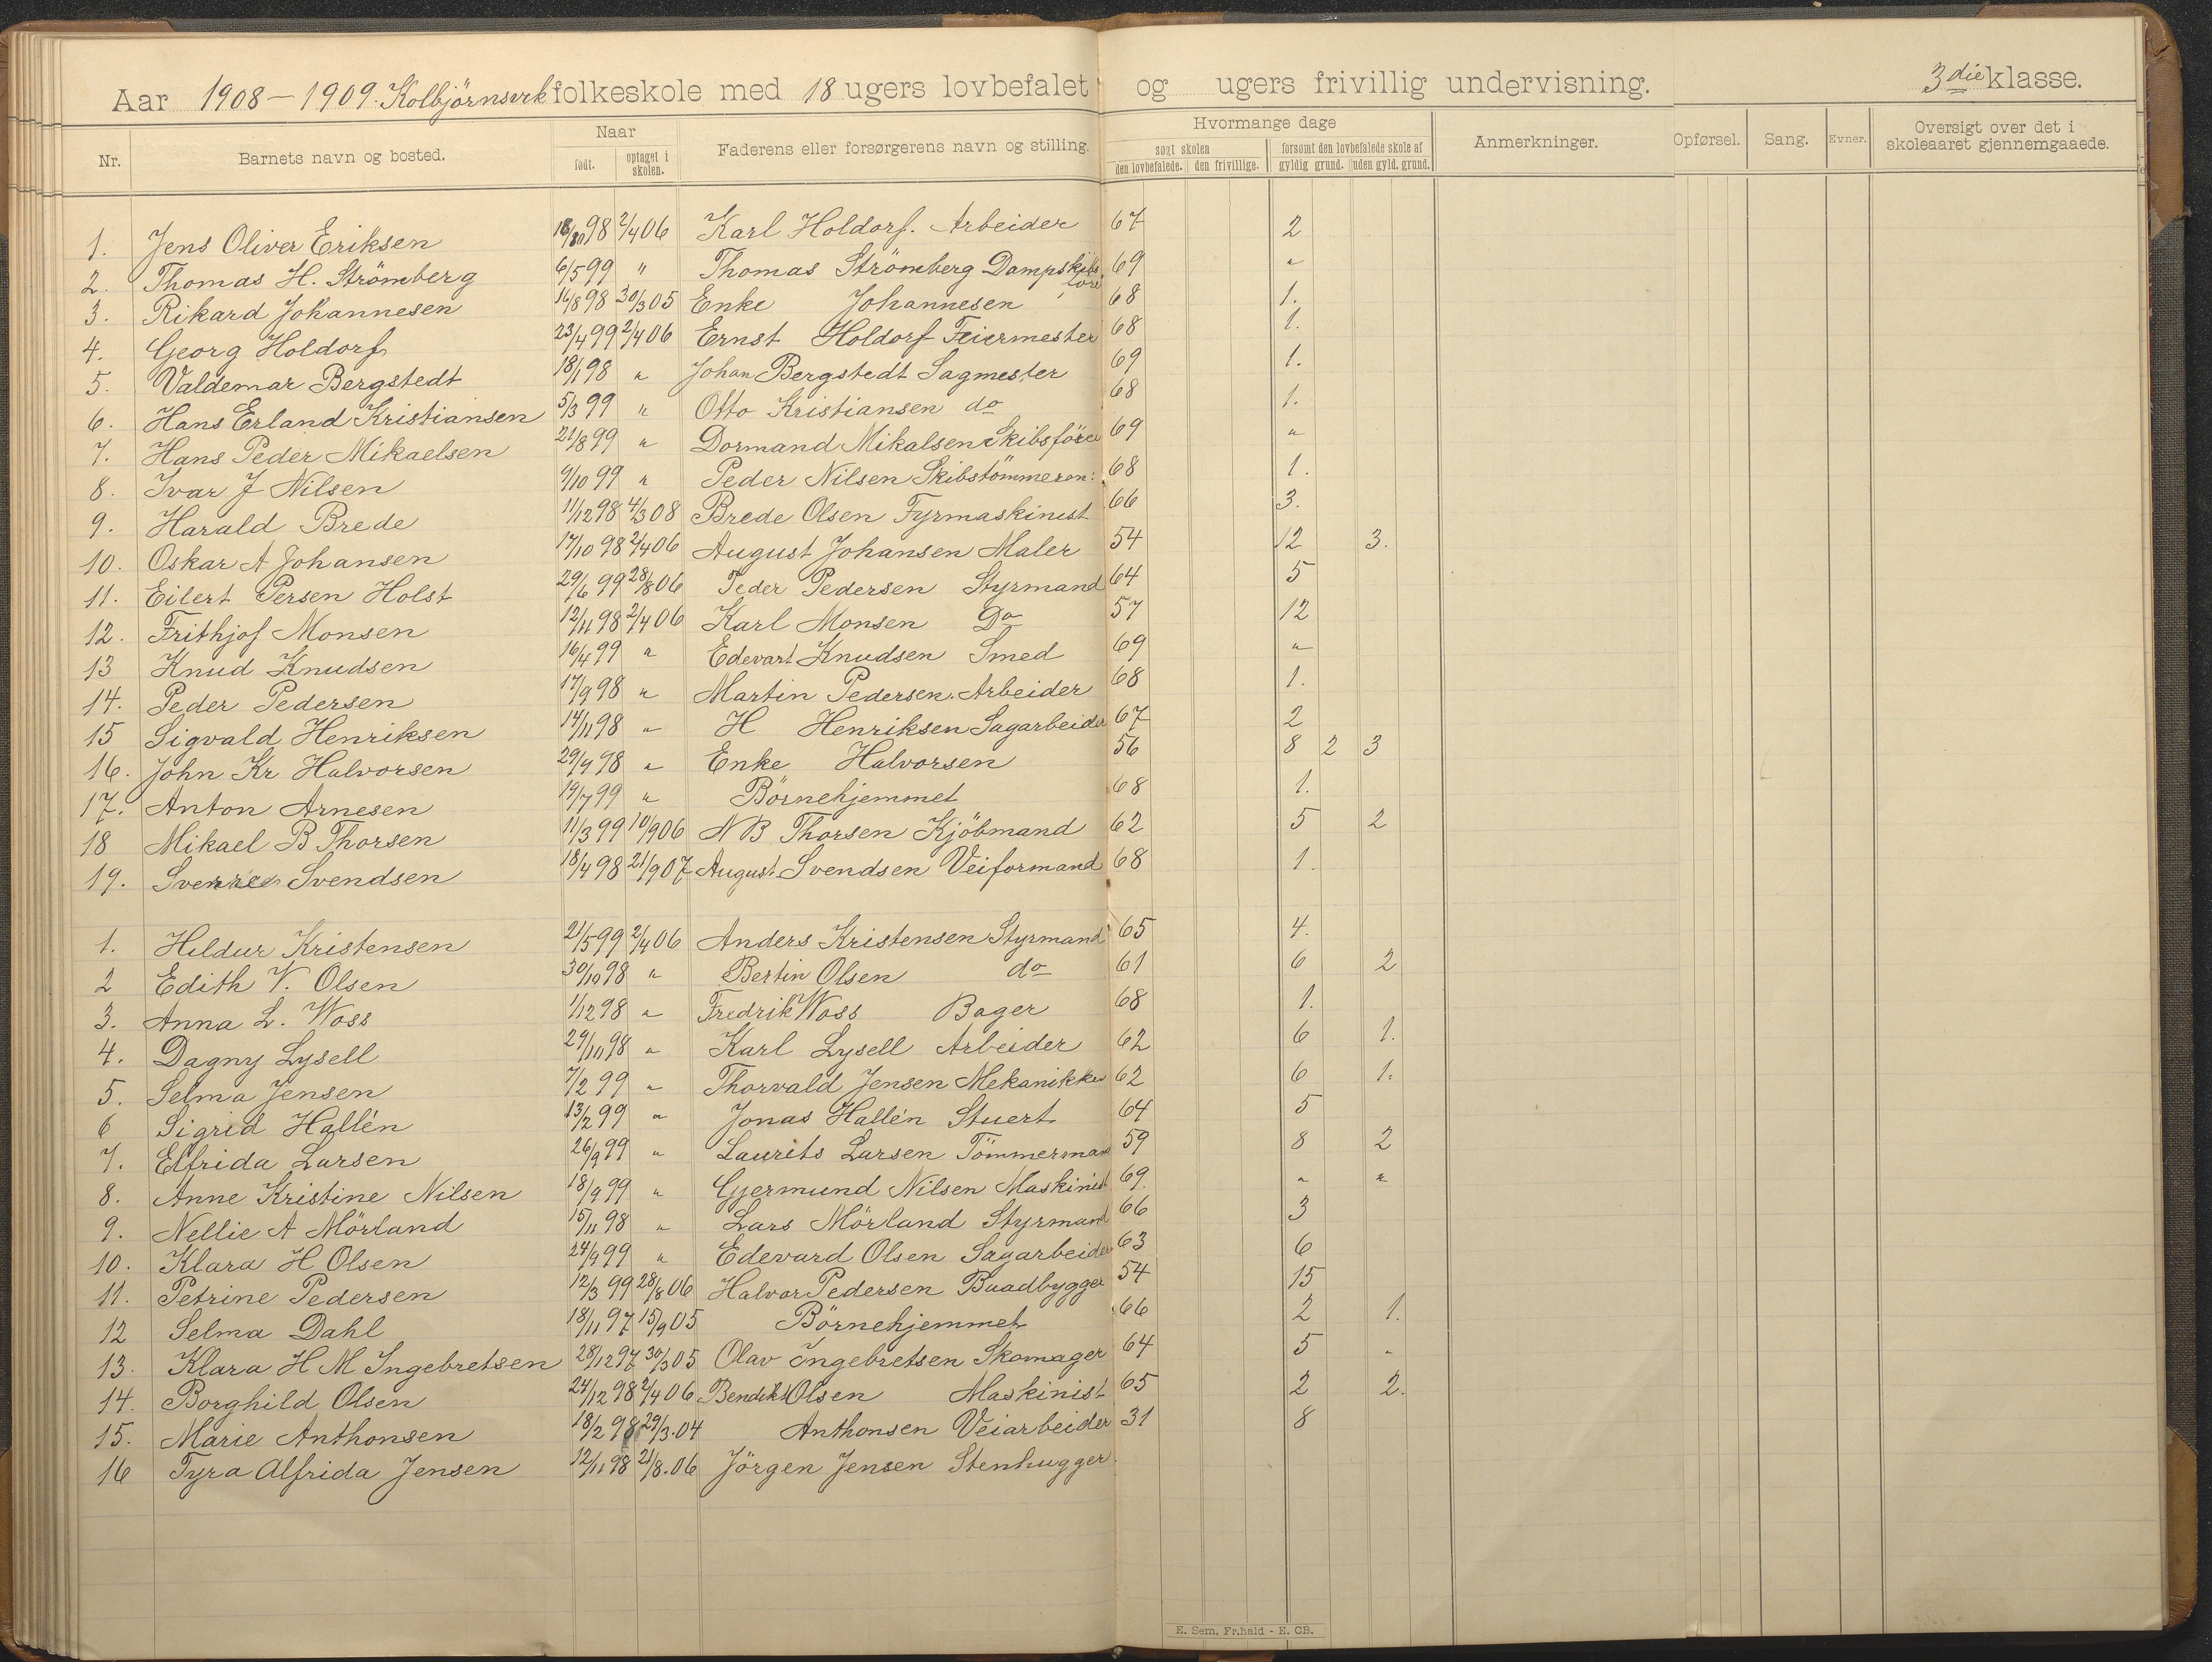 Aar 1908-1909. Kolbjörnsvik folkeskole med 18 ugers lovbefalet og ugers frivillig undervisning. 3die klasse.
Nr. Barnets navn og bosted. Naar født. optaget i skolen. Faderens eller forsørgerens navn og stilling. Hvormange dage søgt skolen den lovbefalede. den frivillige. forsømt den lovbefalede skole af gyldig grund. uden gyld. grund. Anmerkninger. Opførsel. Sang. Evner. Oversigt over det i skoleaaret gjennemgaaede.
1. Jens Oliver Eriksen 98 2/4 06 Karl Holdorf. Arbeider 67 2
2. Thomas H. Strömberg 6/5 99 " Thomas Strömberg Dampskibs 69 "
3. Rikard Johannesen 16/8 98 30/3 05 Enke Johannesen 68 1.
4. Georg Holdorf 23/4 99 2/4 06 Ernst Holdorf Feiermester 68 1.
5. Valdemar Bergstedt 18/1 98 " Johan Bergstedt Sagmester 69 1.
6. Hans Erland Kristiansen 5/3 99 " Otto Kristiansen do 68 1.
7. Hans Peder Mikaelsen 21/8 99 " Dormand Mikalsen Skibsförer 69 "
8. Ivar J Nilsen 9/10 99 " Peder Nilsen Skibstömmerm: 68 1.
9. Harald Brede 11/12 98 4/3 08 Brede Olsen Fyrmaskinist 66 3.
10. Oskar A Johansen 17/10 98 2/4 06 August Johansen Maler 54 12 3.
11. Eilert Persen Holst 29/6 99 28/8 06 Peder Pedersen Styrmand 64 5
12. Frithjof Monsen 12/11 98 2/4 06 Karl Monsen Do 57 12
13 Knud Knudsen 16/4 99 " Edevart Knudsen Smed 69 "
14. Peder Pedersen 17/9 98 " Martin Pedersen. Arbeider 68 1.
15 Sigvald Henriksen 14/11 98 " H Henriksen Sagarbeider 67 2
16. John Kr Halvorsen 29/9 98 " Enke Halvorsen 56 8 2 3
17. Anton Arnesen 19/7 99 " Börnehjemmet 68 1.
18 Mikael B Thorsen 11/3 99 10/9 06 N B Thorsen Kjöbmand 62 5 2
19. Svendsen 18/4 98 21/9 07 August Svendsen Veiformand 68 1.
1. Hildur Kristensen 21/5 99 2/4 06 Anders Kristensen Styrmand 65 4.
2 Edith V. Olsen 30/10 98 " Bertin Olsen do 61 6 2
3. Anna L. Woss 1/12 98 " Fredrik Woss Bager 68 1.
4. Dagny Lysell 29/10 98 " Karl Lysell Arbeider 62 6 1.
5. Selma Jensen 7/2 99 " Thorvald Jensen Mekanikker 62 6 1.
6 Sigrid Hallén 13/2 99 " Jonas Hallén Stuert 64 5
7. Elfrida Larsen 26/9 99 " Laurits Larsen Tömmerman 59 8 2
8. Anne Kristine Nilsen 18/9 99 " Gjermund Nilsen Maskinist 69. " "
9. Nellie A Mörland 15/11 98 " Lars Mörland Styrmand 66 3
10. Klara H Olsen 24/9 99 " Edevard Olsen Sagarbeider 63 6
11. Petrine Pedersen 12/3 99 28/8 06 Halvor Pedersen Baadbygger 54 15
12 Selma Dahl 18/11 97 15/9 05 Börnehjemmet 66 2 1.
13. Klara H M Ingebretsen 28/12 97 30/3 05 Olav Ingebretsen Skomager 64 5 "
14. Borghild Olsen 24/12 98 2/4 06 Bendikt Olsen Maskinist 65 2 2.
15. Marie Anthonsen 18/2 98 29/3.04 Anthonsen Veiarbeider 31 8
16 Tyra Alfrida Jensen 12/11 98 21/8.06 Jörgen Jensen Stenhugger
E. Sem, Fr.hald - E. CB.